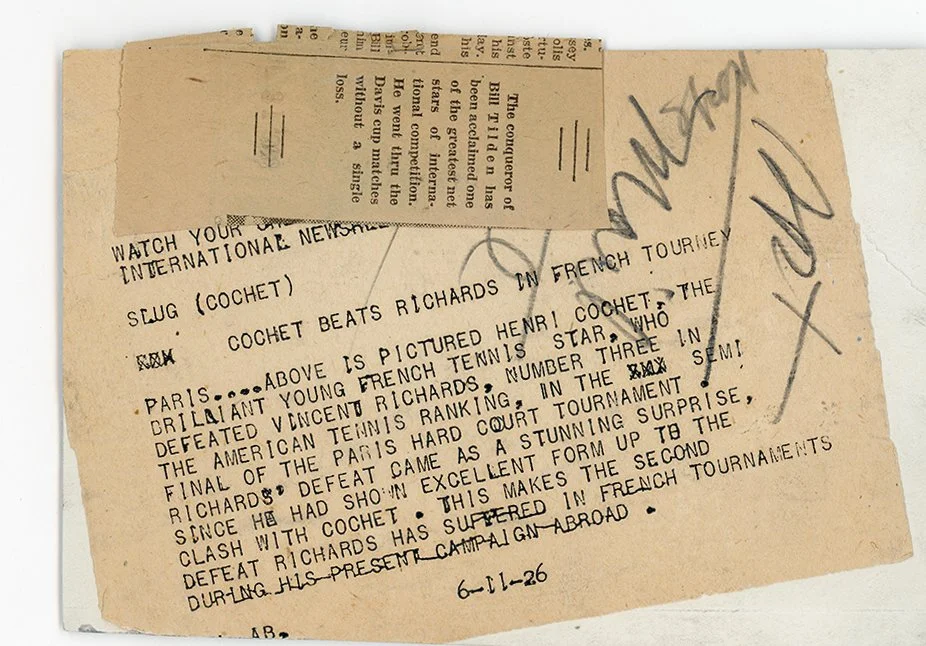 The conqueror of
Bill Tilden has
been acclaimed one
of the greatest net
stars of interna-
tional competition.
He went thru the
Davis cup matches
without a single
loss.
WATCH YOUR
INTERNATIONAL
SLUG (COCHET)
COCHET BEATS RICHARDS IN FRENCH TOURNEY
PARIS....ABOVE IS PICTURED HENRI COCHET, THE
BRILLIANT YOUNG FRENCH TENNIS STAR, WHO
DEFEATED VINCENT RICHARDS, NUMBER THREE IN
THE AMERICAN TENNIS RANKING, IN THE XXX SEMI
FINAL OF THE PARIS HARD COURT TOURNAMENT .
RICHARDS' DEFEAT CAME AS A STUNNING SURPRISE,
SINCE HE HAD SHOWN EXCELLENT FORM UP TO THE
CLASH WITH COCHET . THIS MAKES THE SECOND
DEFEAT RICHARDS HAS SUFFERED IN FRENCH TOURNAMENTS
DURING HIS PRESENT CAMPAIGN ABROAD .
6-11-26
AB.